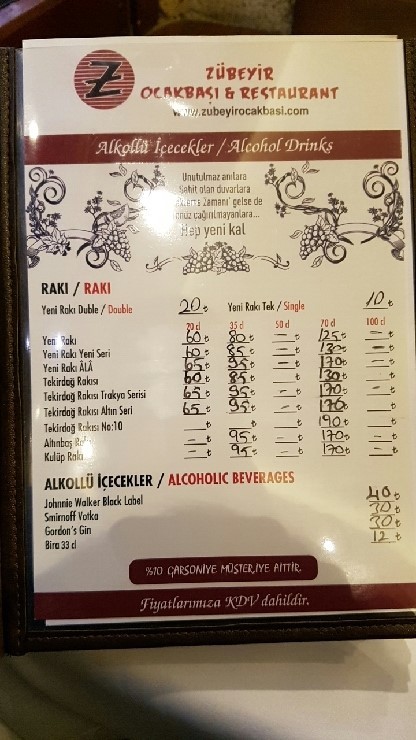 Z
ZÜBEYİR
OCAKBAŞI & RESTAURANT
www.zubeyirocakbasi.com
Alkollü İçecekler / Alcohol Drinks
Unutulmaz anılara
şahit olan duvarlara
Zamanı' gelse de
çağırılmayanlara...
Hep yeni kal
RAKI / RAKI
Yeni Rakı Duble / Double 20 ₺ Yeni Rakı Tek / Single 10 ₺
20 cl 35 cl 50 cl 70 cl 100 cl
Yeni Rakı 60 ₺ 80 ₺ — ₺ 125 ₺ — ₺
Yeni Rakı Yeni Seri 60 ₺ 85 ₺ — ₺ 130 ₺ — ₺
Yeni Rakı ÂLÂ 65 ₺ 95 ₺ — ₺ 170 ₺ — ₺
Tekirdağ Rakısı 60 ₺ 85 ₺ — ₺ 130 ₺ — ₺
Tekirdağ Rakısı Trakya Serisi 65 ₺ 95 ₺ — ₺ 170 ₺ — ₺
Tekirdağ Rakısı Altın Seri 65 ₺ 95 ₺ — ₺ 170 ₺ — ₺
Tekirdağ Rakısı No:10 — ₺ ₺ — ₺ 190 ₺ — ₺
Altınbaş Rakı — ₺ 95 ₺ — ₺ 170 ₺ — ₺
Kulüp Rakı — ₺ 95 ₺ — ₺ 170 ₺ — ₺
ALKOLLÜ İÇECEKLER / ALCOHOLIC BEVERAGES
Johnnie Walker Black Label 40 ₺
Smirnoff Votka 30 ₺
Gordon's Gin 30 ₺
Bira 33 cl 12 ₺
%10 GARSONİYE MÜŞTERİYE AİTTİR.
Fiyatlarımıza KDV dahildir.